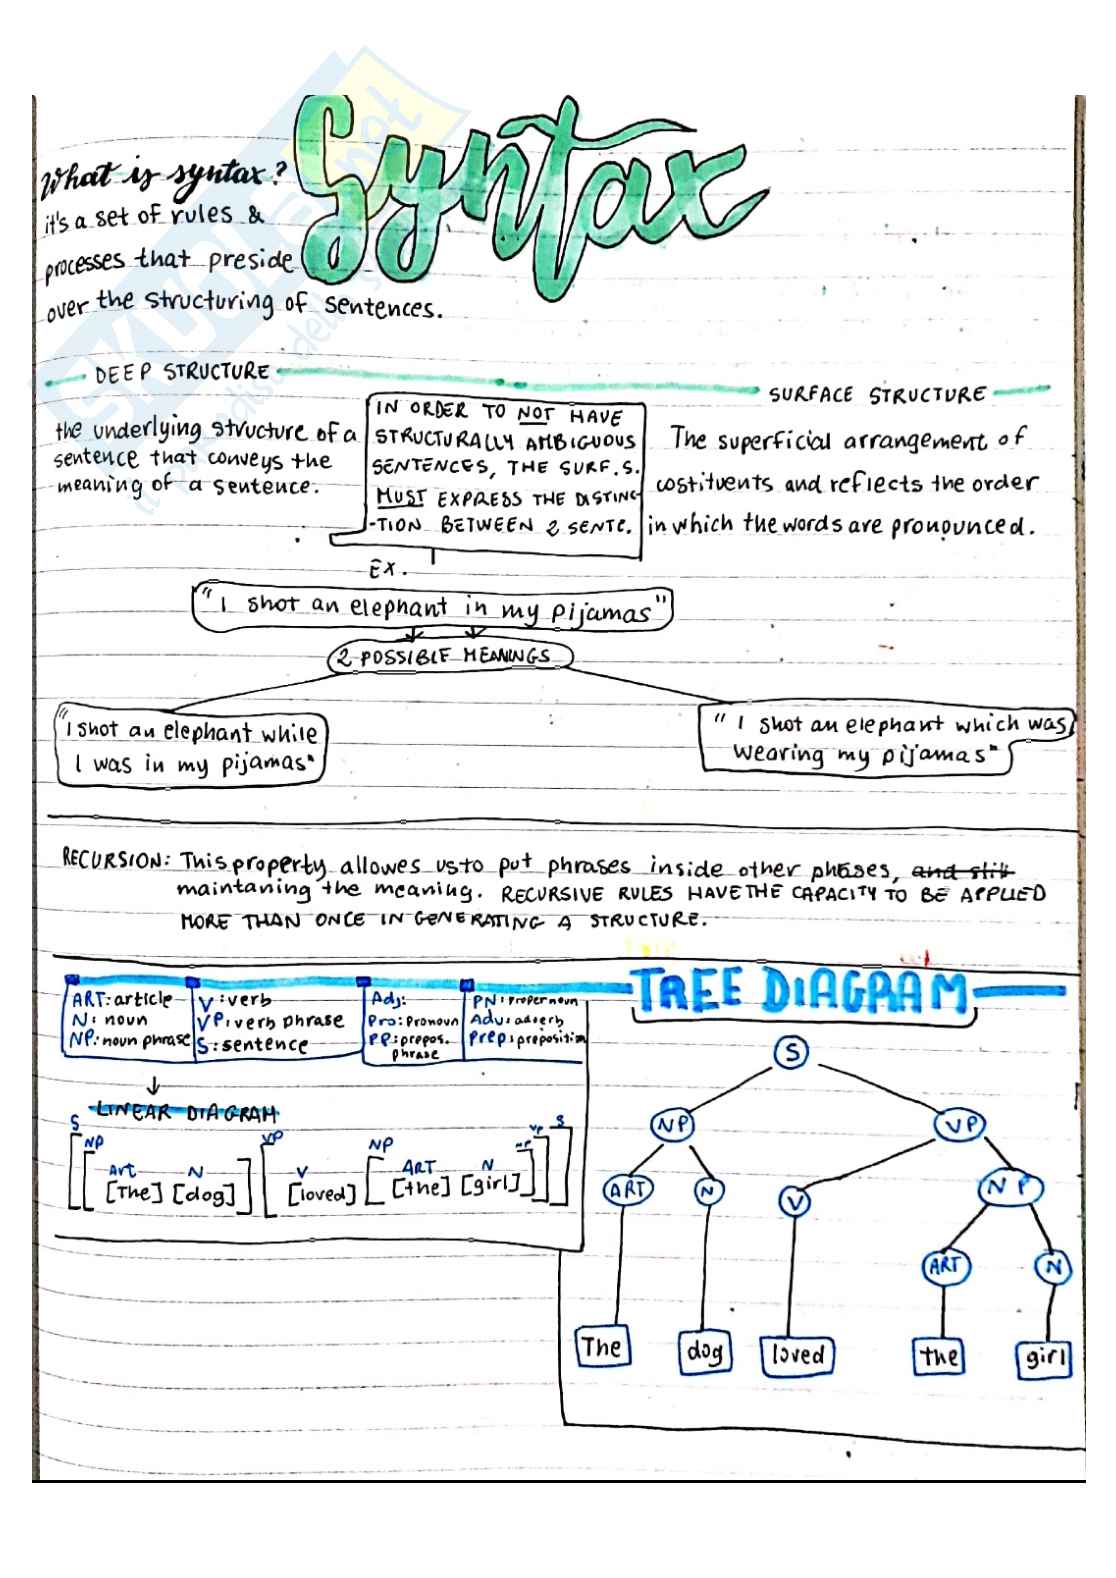 Syntax
What is syntax?
it's a set of rules &
processes that preside
over the structuring of sentences.
DEEP STRUCTURE
the underlying structure of a
sentence that conveys the
meaning of a sentence.
IN ORDER TO NOT HAVE
STRUCTURALLY AMBIGUOUS
SENTENCES, THE SURF.S.
MUST EXPRESS THE DISTINC
-TION BETWEEN 2 SENTC.
SURFACE STRUCTURE
The superficial arrangement of
costituents and reflects the order
in which the words are pronounced.
EX.
"I shot an elephant in my pijamas"
2 POSSIBLE MEANINGS
"I shot an elephant while
I was in my pijamas"
"I shot an elephant which was
wearing my pijamas"
RECURSION: This property allowes us to put phrases inside other phases, and still
maintaning the meaning. RECURSIVE RULES HAVE THE CAPACITY TO BE APPLIED
MORE THAN ONCE IN GENERATING A STRUCTURE.
ART: article
N: noun
NP: noun phrase
V: verb
VP: verb phrase
S: sentence
Adj:
Pro: Pronoun
PP: prepos.
phrase
PN: Proper noun
Adv: adverb
Prep: preposition
LINEAR DIAGRAM
S NP VP NP NP VP S
Art N V ART N
[[[The] [dog]] [[loved] [[the] [girl]]]]
TREE DIAGRAM
S
NP VP
ART N V NP
ART N
The dog loved the girl